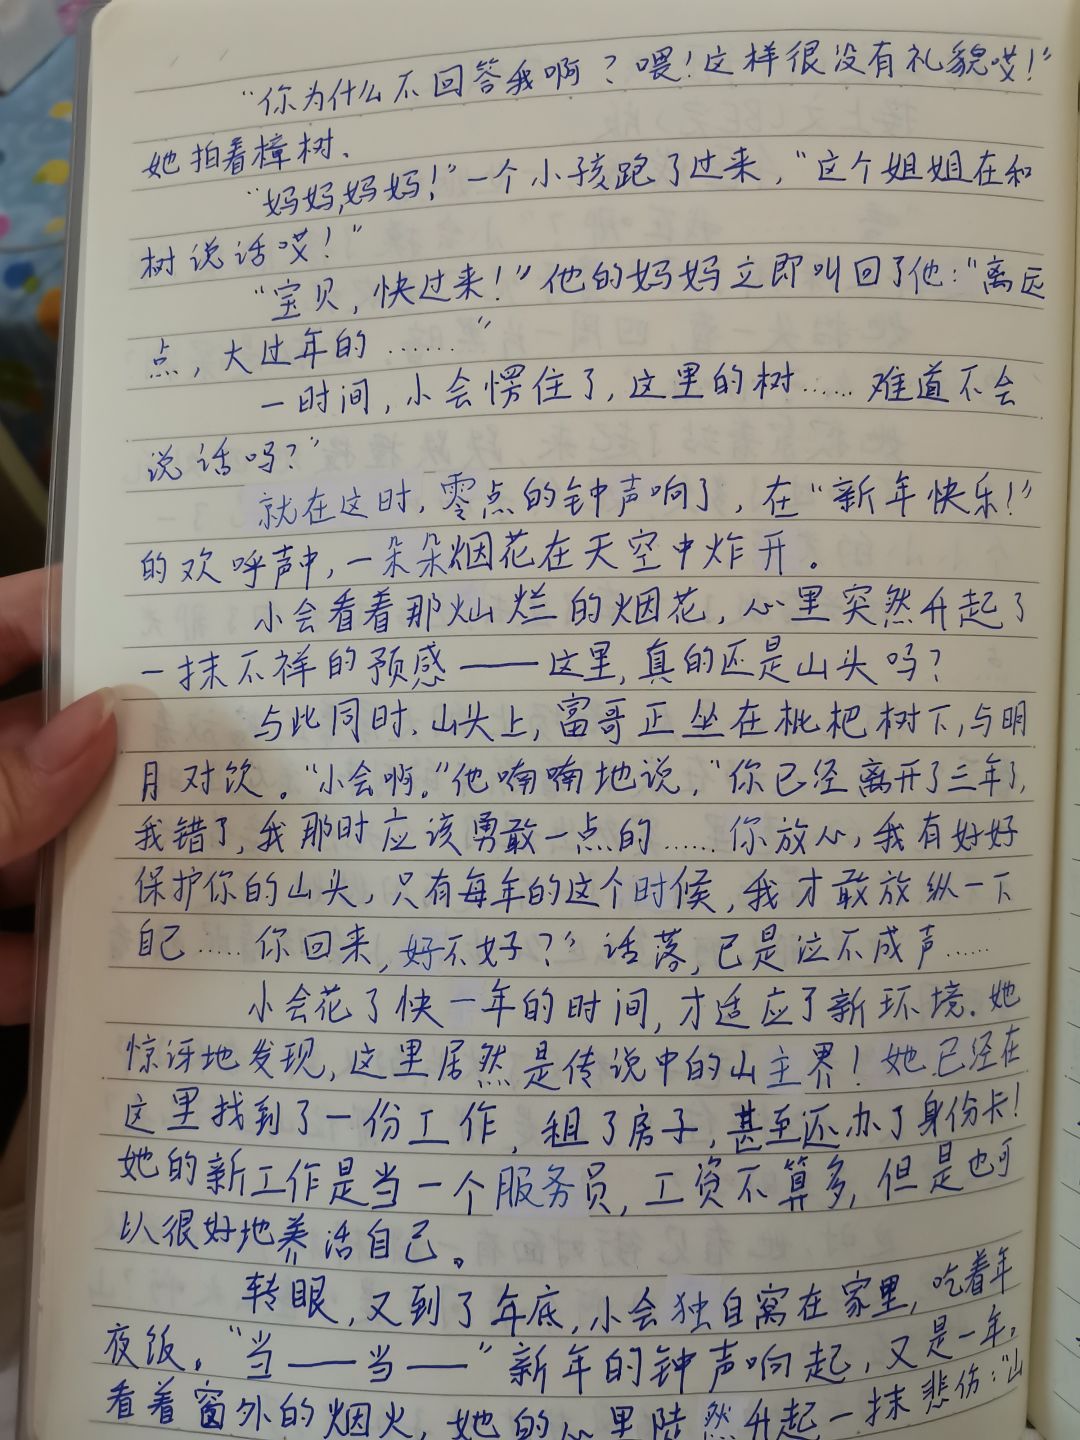 "你为什么不回答我啊？喂！这样很没有礼貌哎！"
她拍着樟树.
"妈妈,妈妈！"一个小孩跑了过来，"这个姐姐在和
树说话哎！"
"宝贝，快过来！"他的妈妈立即叫回了他："离远
点，大过年的……"
一时间，小会愣住了，这里的树……难道不会
说话吗？"
就在这时，零点的钟声响了，在"新年快乐！"
的欢呼声中，一朵朵烟花在天空中炸开。
小会看着那灿烂的烟花，心里突然升起了
一抹不祥的预感——这里，真的还是山头吗？
与此同时.山头上，富哥正坐在枇杷树下，与明
月对饮。"小会啊."他喃喃地说，"你已经离开了三年了，
我错了，我那时应该勇敢一点的……你放心，我有好好
保护你的山头，只有每年的这个时候，我才敢放纵一下
自己……你回来，好不好？"话落，已是泣不成声……
小会花了快一年的时间，才适应了新环境.她
惊讶地发现，这里居然是传说中的山主界！她已经在
这里找到了一份工作，租了房子，甚至还办了身份卡！
她的新工作是当一个服务员，工资不算多，但是也可
以很好地养活自己。
转眼，又到了年底，小会独自窝在家里，吃着年
夜饭。"当——当——"新年的钟声响起，又是一年，
看着窗外的烟火，她的心里陡然升起一抹悲伤："山